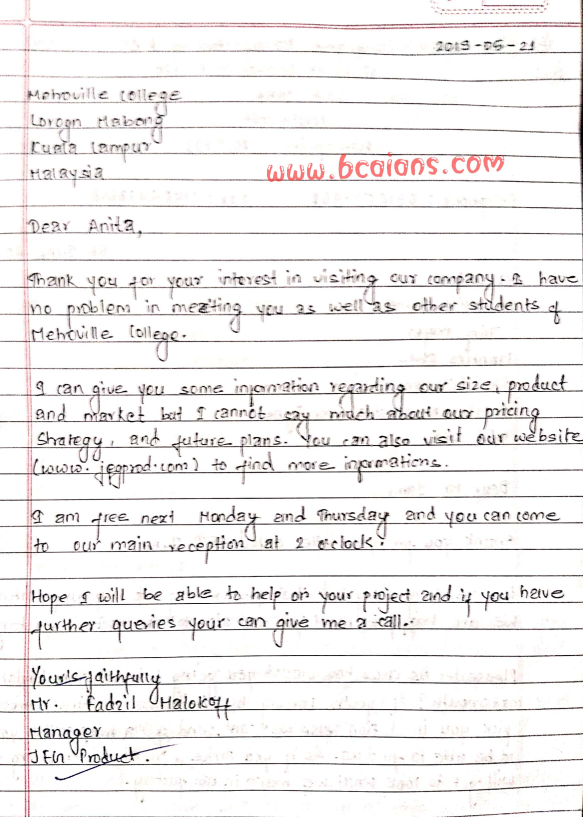 2019-05-21
Mehoville College
Lorogn Mabong
Kuala Lampur
Malaysia
www.bcaians.com
Dear Anita,
Thank you for your interest in visiting our company. I have
no problem in meeting you as well as other students of
Mehoville College.
I can give you some information regarding our size, product
and market but I cannot say much about our pricing
strategy, and future plans. You can also visit our website
(www.jfgprod.com) to find more informations.
I am free next Monday and Thursday and you can come
to our main reception at 2 o'clock.
Hope I will be able to help on your project and if you have
further queries your can give me a call.
Your's faithfully
Mr. Fadzil Malokoff
Manager
JFG Product.